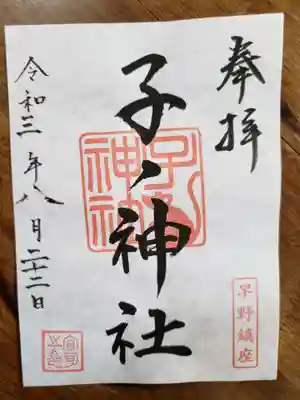 奉拝
早野鎮座
子ノ神社
令和三年八月二十二日